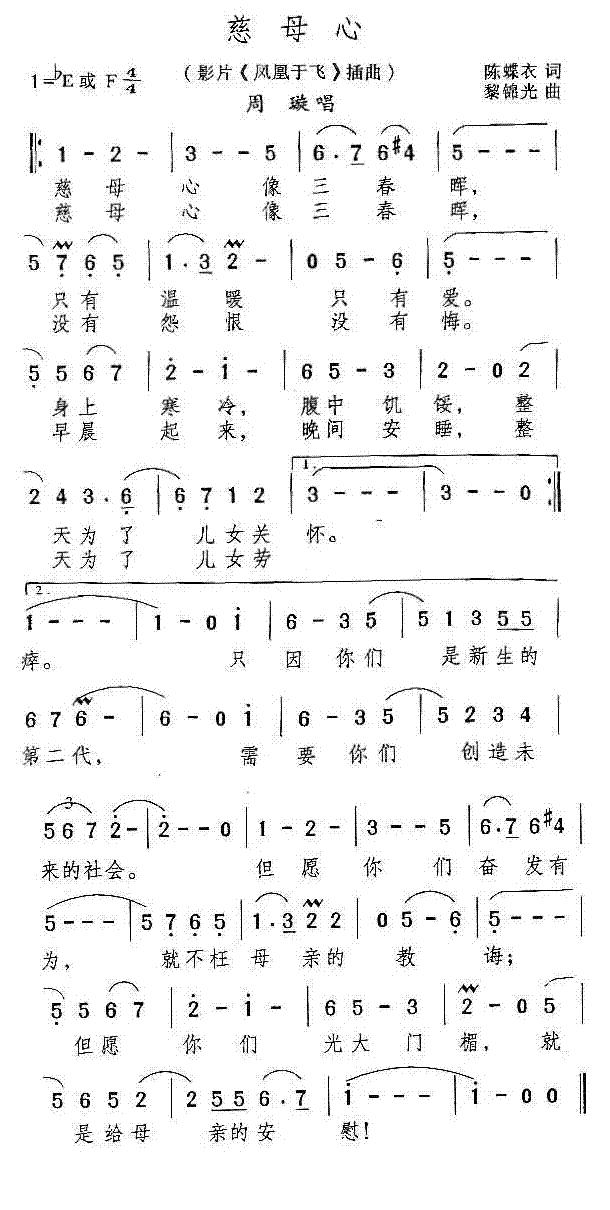 慈母心
1=♭E或F 4/4 （影片《凤凰于飞》插曲） 陈蝶衣 词
周璇唱 黎锦光 曲
‖: 1 - 2 - | 3 - - 5 | 6 . 7 6 #4 | 5 - - -
慈母心像三春晖，
慈母心像三春晖，
5 7 6 5 | 1 . 3 2 - | 0 5 - 6 | 5 - - -
只有温暖只有爱。
没有怨恨没有悔。
5 5 6 7 | 2 - 1 - | 6 5 - 3 | 2 - 0 2
身上寒冷，腹中饥馁，整
早晨起来，晚间安睡，整
1.
2 4 3 . 6 | 6 7 1 2 | 3 - - - | 3 - - 0 :‖
天为了儿女关怀。
天为了儿女劳
2.
1 - - - | 1 - 0 1 | 6 - 3 5 | 5 1 3 5 5
瘁。只因你们是新生的
6 7 6 - | 6 - 0 1 | 6 - 3 5 | 5 2 3 4
第二代，需要你们创造未
3
5 6 7 2 - | 2 - - 0 | 1 - 2 - | 3 - - 5 | 6 . 7 6 #4
来的社会。但愿你们奋发有
5 - - - | 5 7 6 5 | 1 . 3 2 2 | 0 5 - 6 | 5 - - -
为，就不枉母亲的教诲；
5 5 6 7 | 2 - 1 - | 6 5 - 3 | 2 - 0 5
但愿你们光大门楣，就
5 6 5 2 | 2 5 5 6 . 7 | 1 - - - | 1 - 0 0 ‖
是给母亲的安慰！